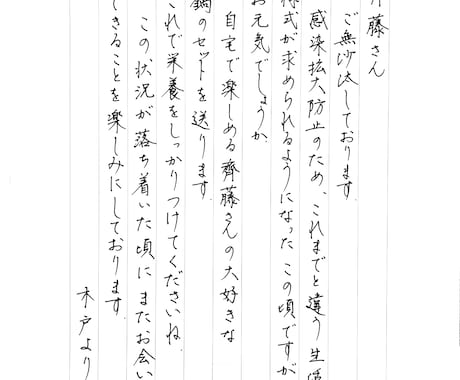 齊藤さん
ご無沙汰しております。
感染拡大防止のため、これまでと違う生活
様式が求められるようになったこの頃ですが
お元気でしょうか。
自宅で楽しめる齊藤さんの大好きな
鍋のセットを送ります。
これで栄養をしっかりつけてくださいね。
この状況が落ち着いた頃にまたお会い
できることを楽しみにしております。
木戸より